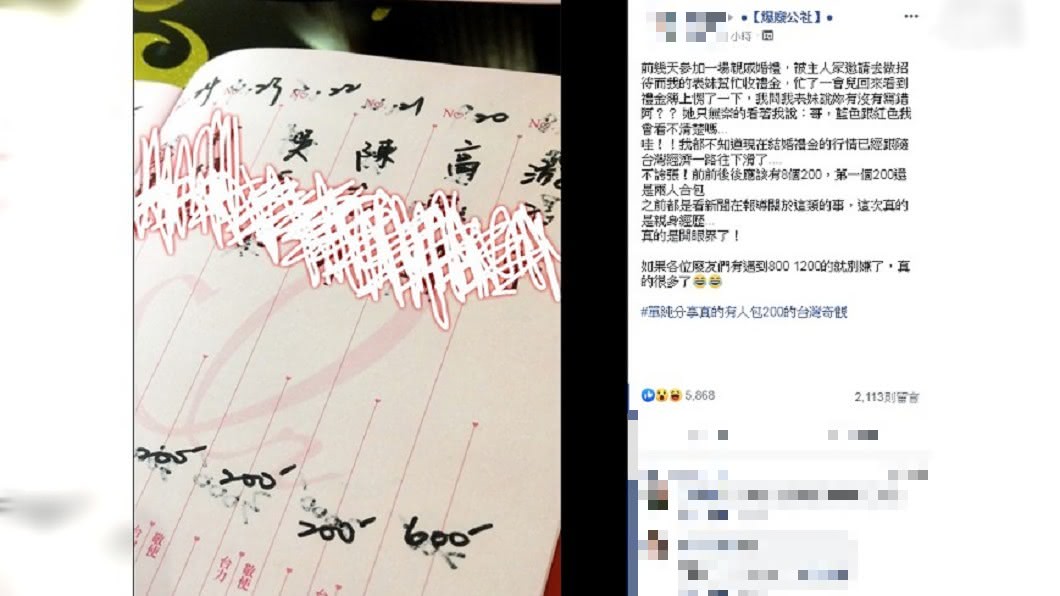 No.23
22
No.21
No.20
吳
陳
高
200-
200-
200-
600-
敬使
台力
敬使
台力
【爆廢公社】
小時
前幾天參加一場親戚婚禮，被主人家邀請去做招
待而我的表妹幫忙收禮金，忙了一會兒回來看到
禮金簿上愣了一下，我問我表妹說妳有沒有寫錯
阿？？她只無奈的看著我說：哥，藍色跟紅色我
會看不清楚嗎...
哇！！我都不知道現在結婚禮金的行情已經跟隨
台灣經濟一路往下滑了....
不誇張！前前後後應該有8個200，第一個200還
是兩人合包
之前都是看新聞在報導關於這類的事，這次真的
是親身經歷...
真的是開眼界了！
如果各位廢友們有遇到800 1200的就別嫌了，真
的很多了😂😂
#單純分享真的有人包200的台灣奇觀
5,868
2,113則留言